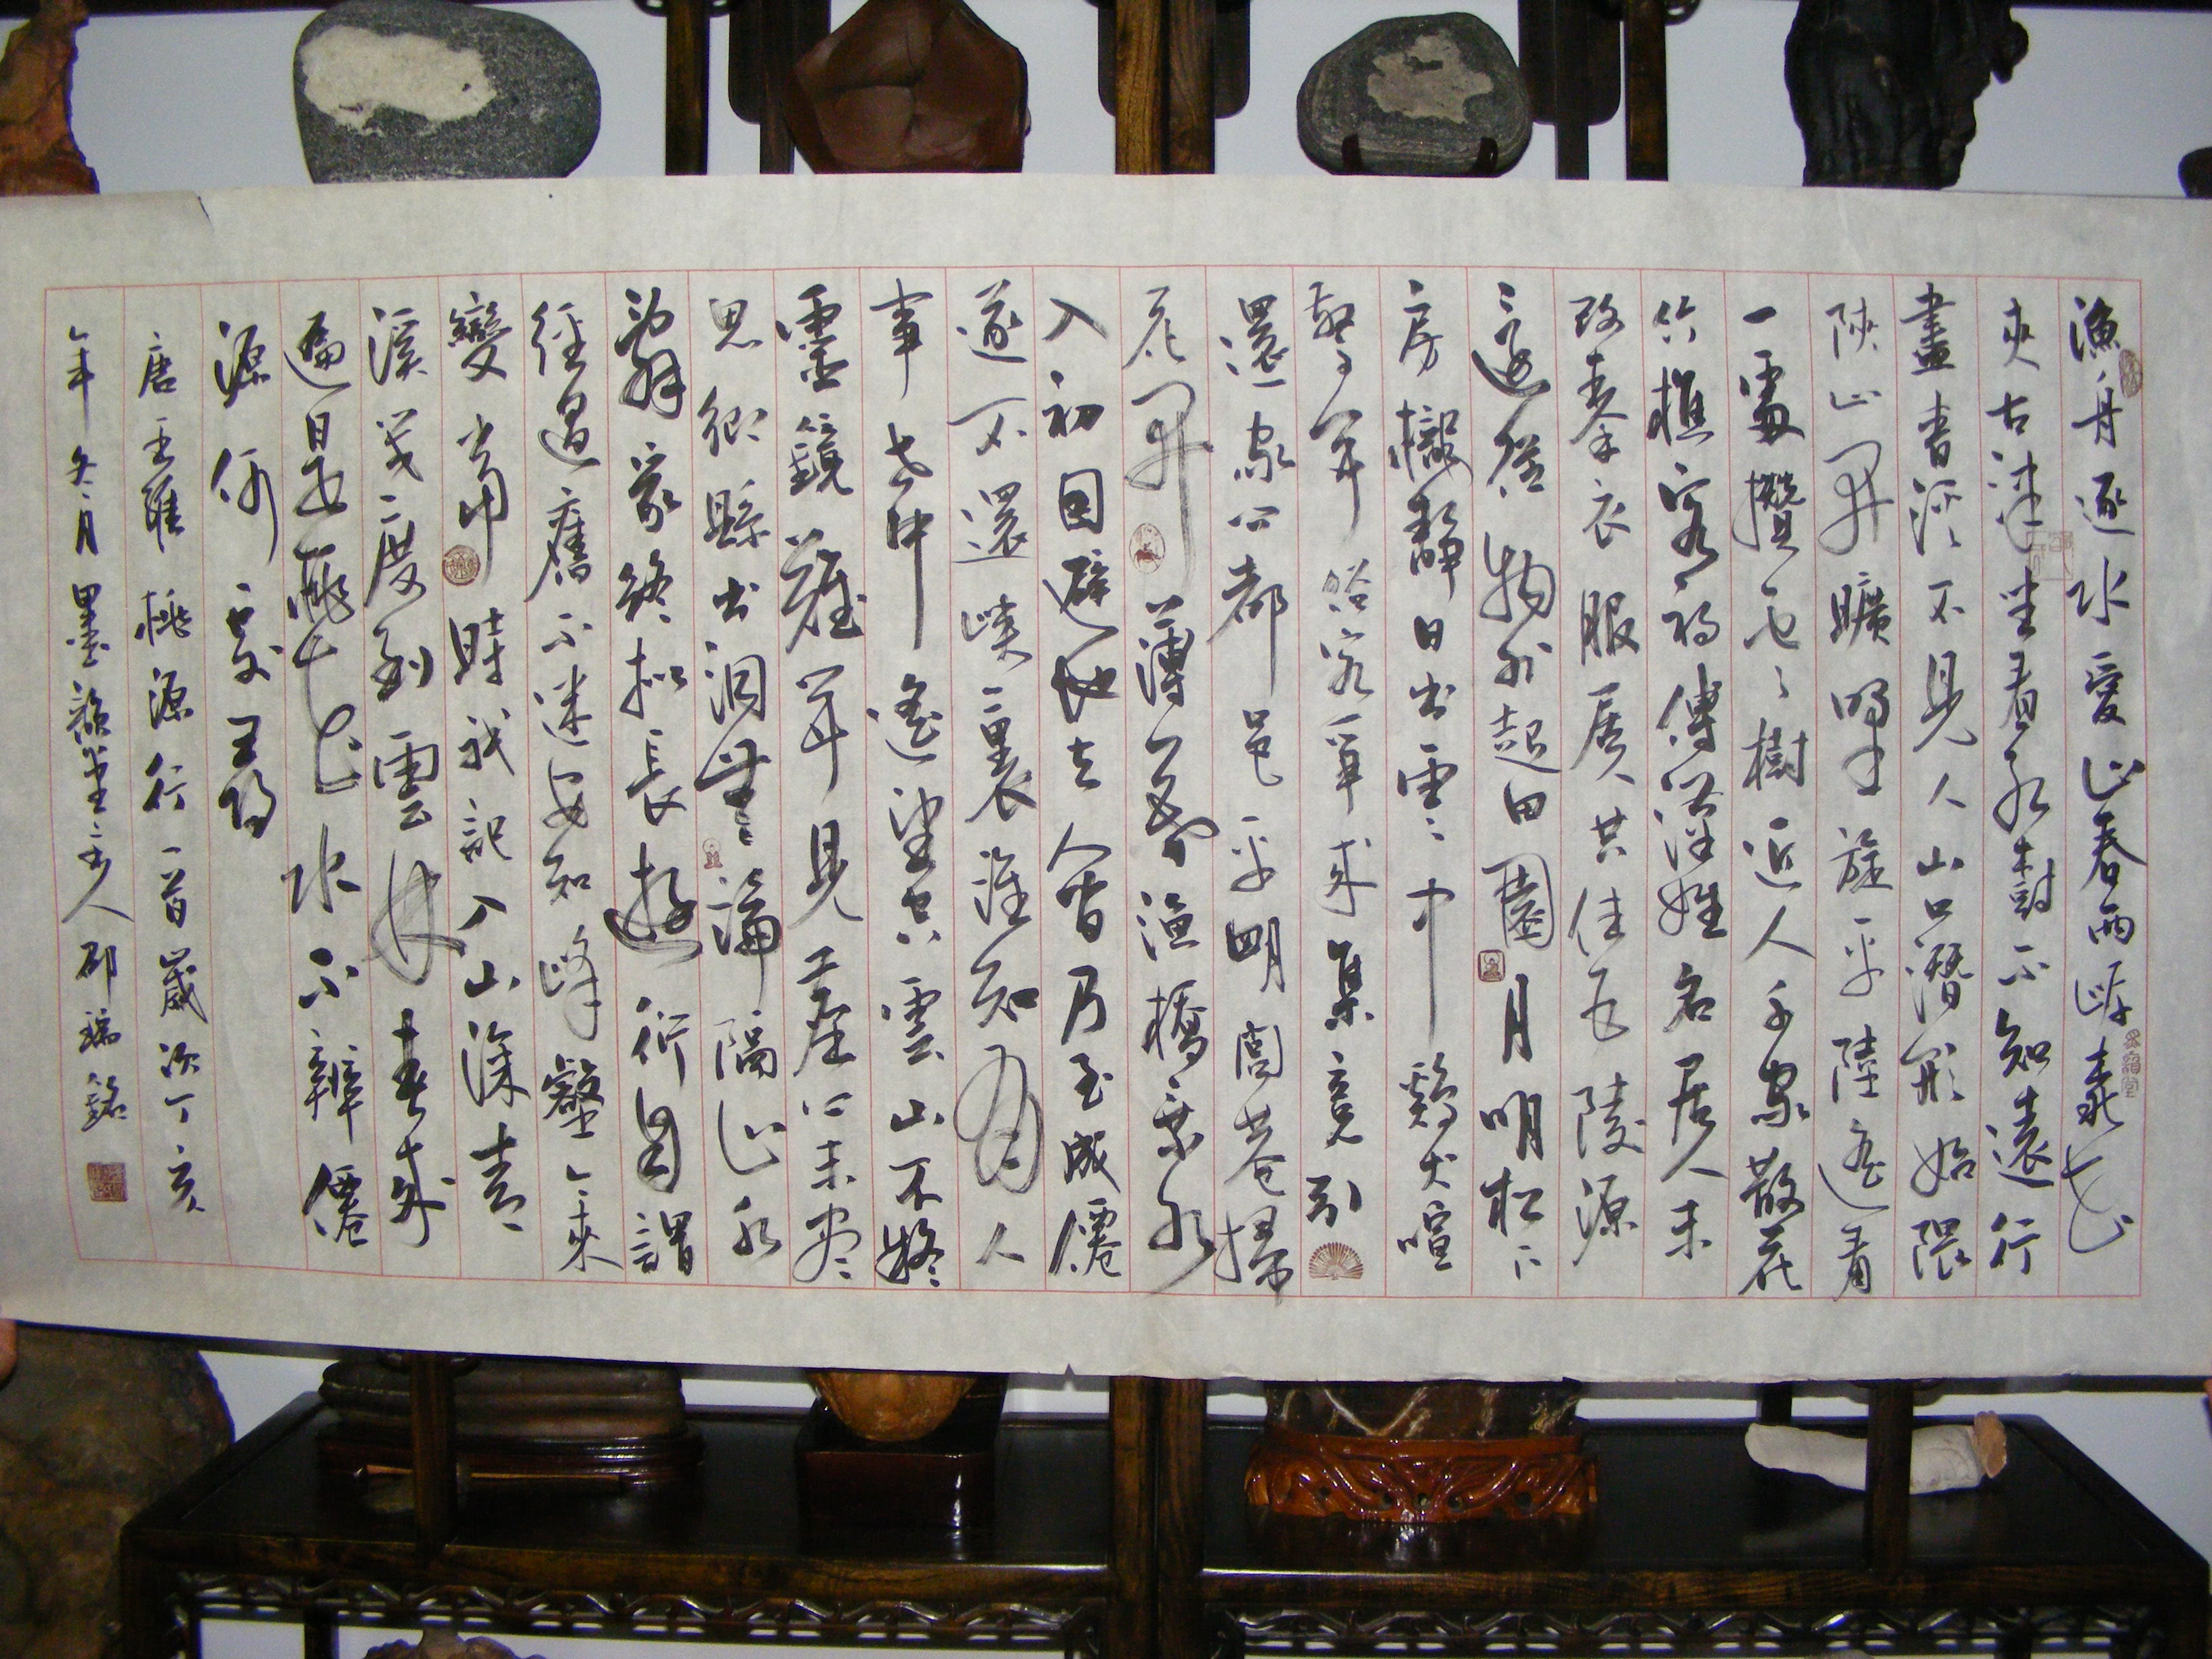 漁舟逐水愛山春兩岸桃花
夾古津坐看紅樹不知遠行
盡青溪不見人山口潛形始隈
隩山開曠望旋平陸遙看
一處攢雲樹近入千家散花
竹樵客初傳漢姓名居人未
改秦衣服居人共住武陵源
還從物外起田園月明松下
房櫳靜日出雲中雞犬喧
驚聞俗客爭來集竟引
還家問都邑平明閭巷掃
花開薄暮漁樵乘水
入初因避地去人間乃至成僊
遂不還峽裏誰知有人
事世中遙望空雲山不疑
靈鏡難聞見塵心未盡
思鄉縣出洞無論隔山水
辭家終擬長游衍自謂
經過舊不迷安知峰壑今來
變當時只記入山深青
溪幾度到雲林春來
遍是桃花水不辨僊
源何處尋
唐王維桃源行一首歲次丁亥
年冬月墨韻堂主人邵瑞銘